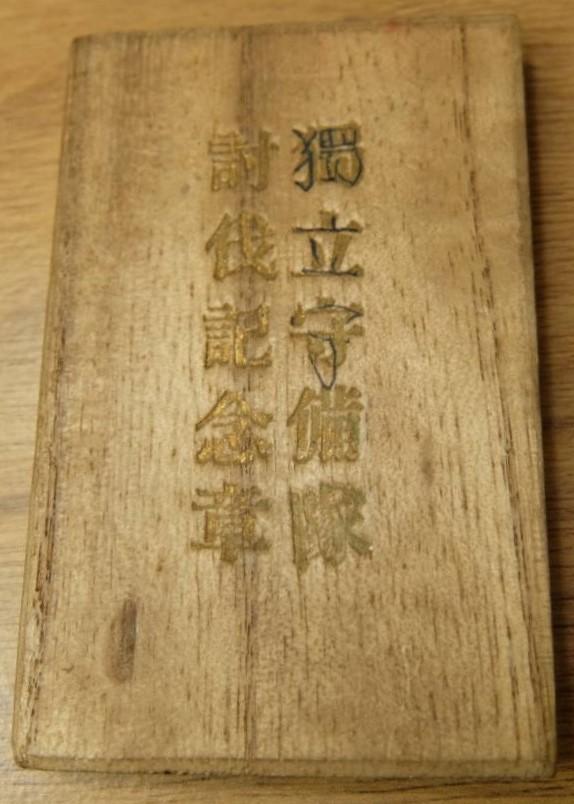 獨立守備隊
討伐記念章